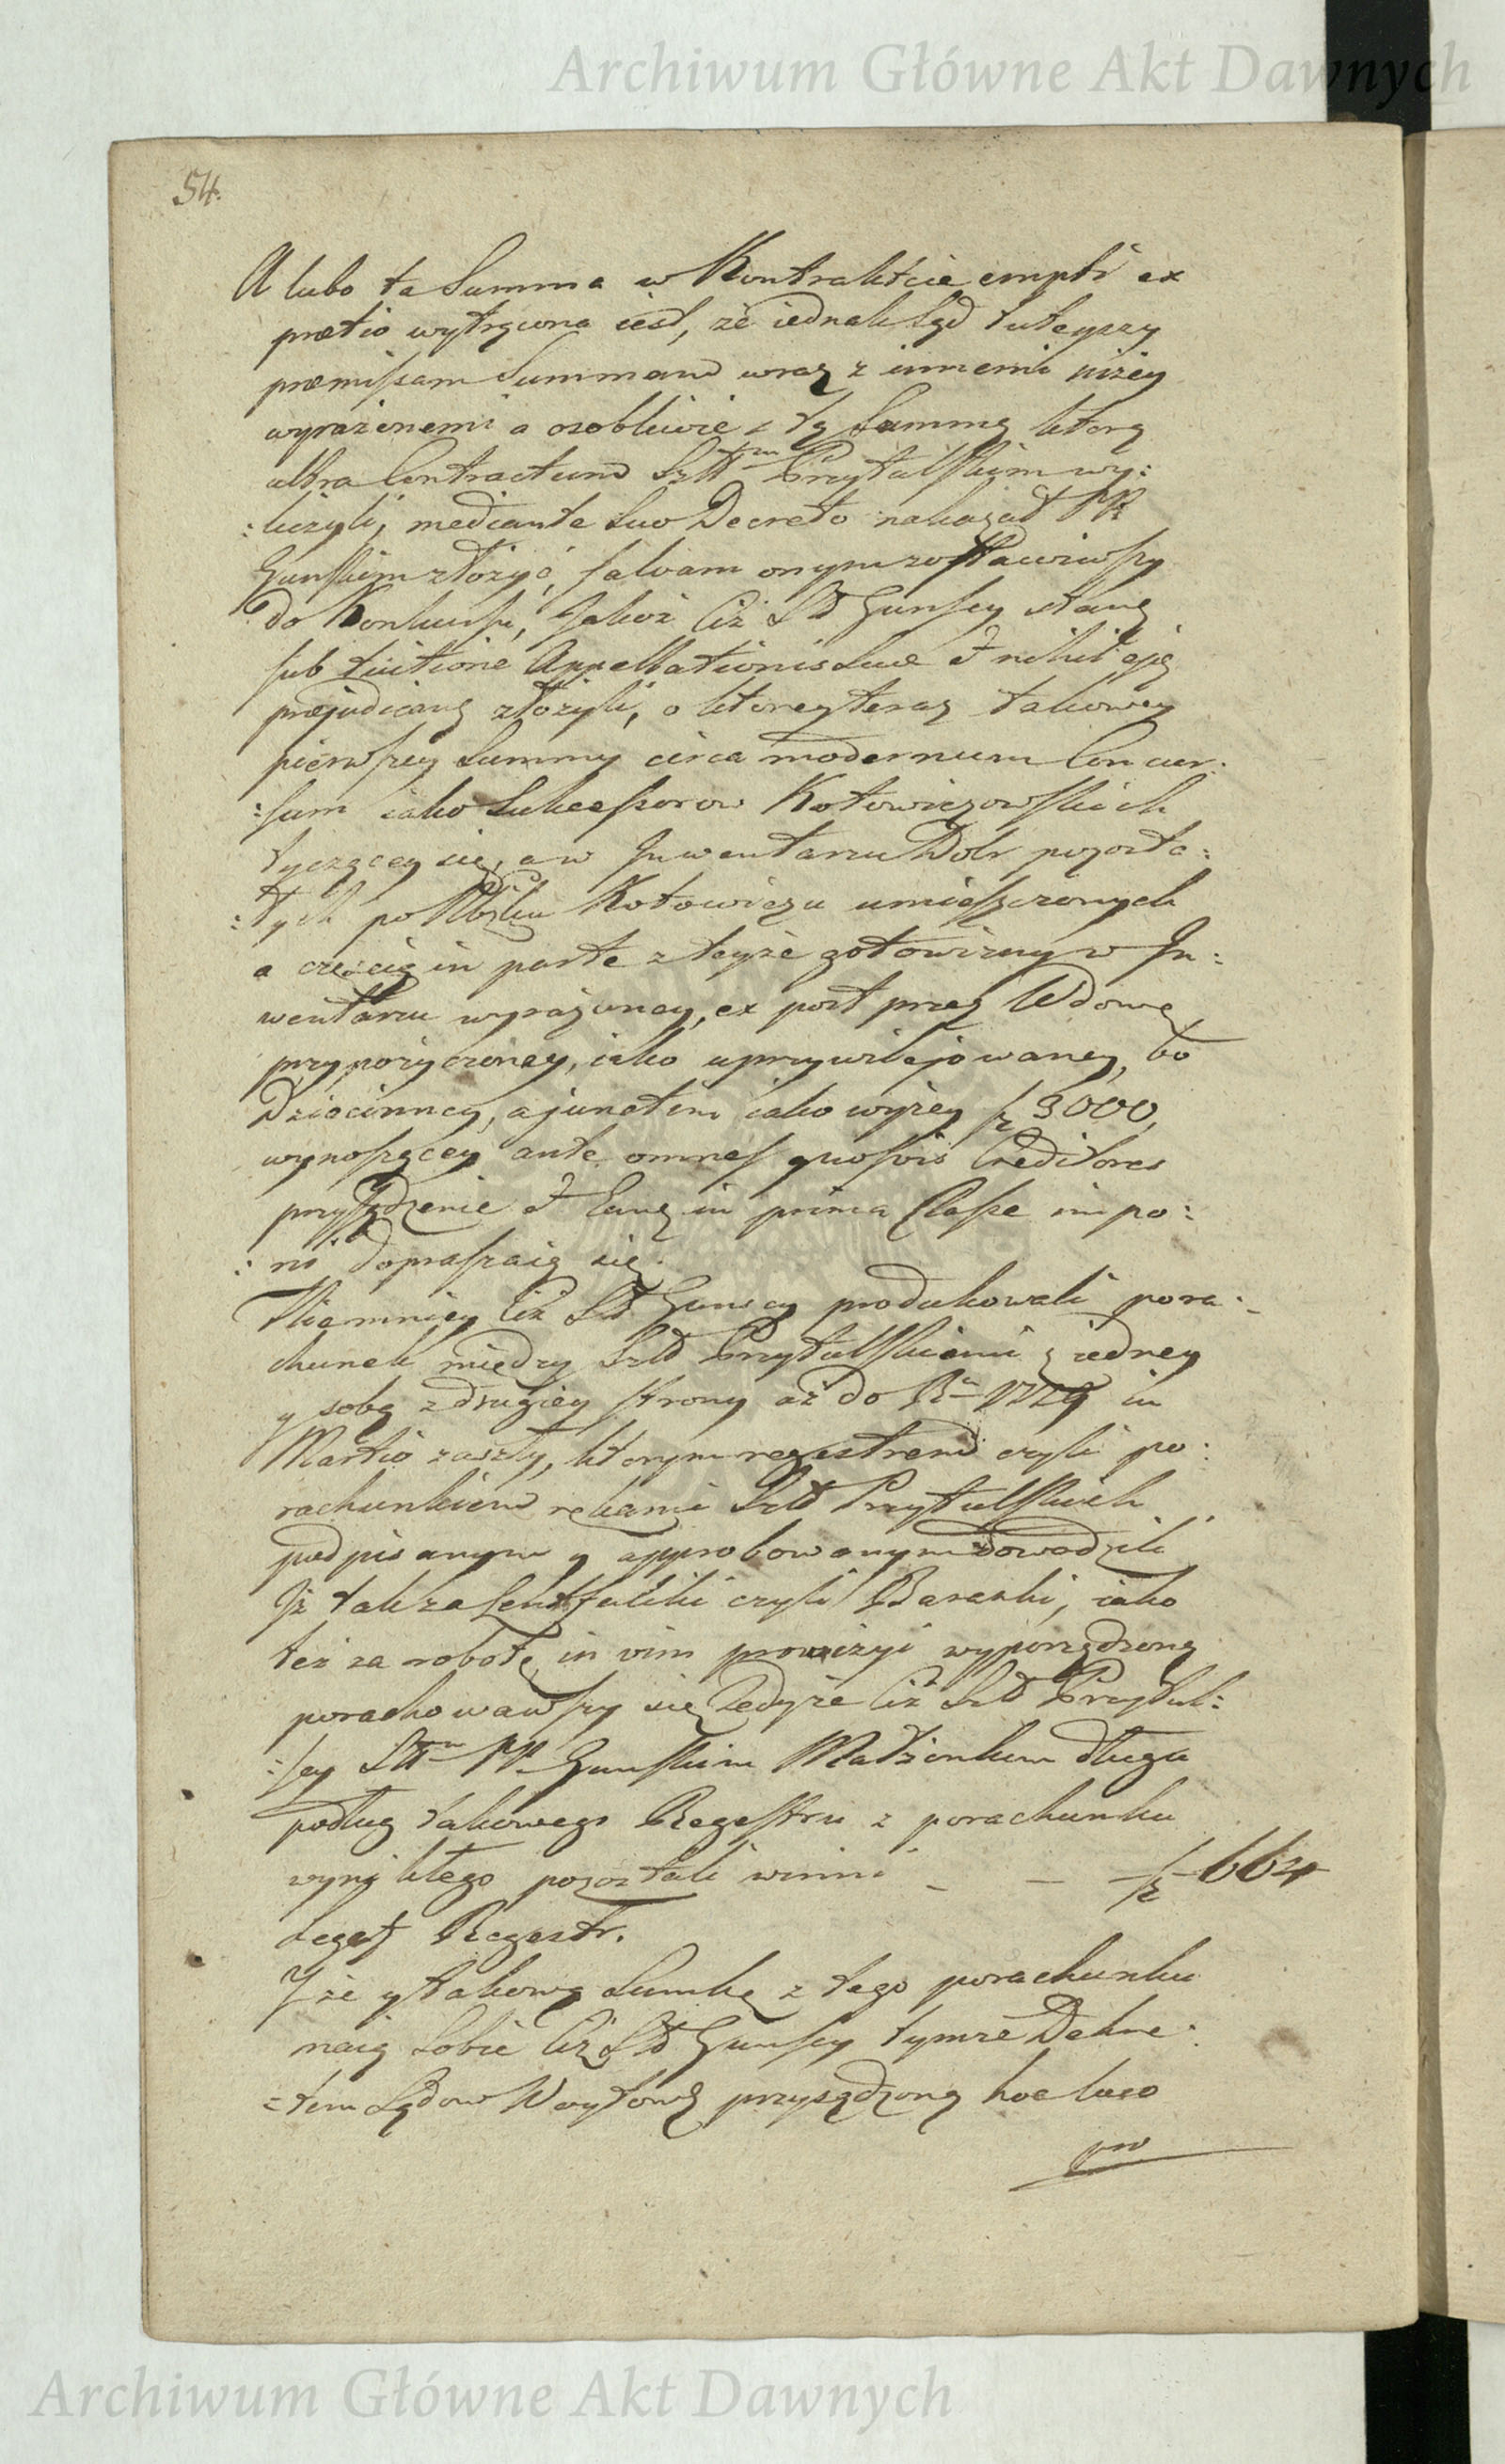 Archiwum Główne Akt Dawnych
54.
A lubo ta Summa w Kontrakcie empti ex
pretio wytrącona iest, że iednak Sąd tuteyszy
præmissam Summam wraz z innemi niżey
wyrażonemi a osobliwie z tą Summą ktorą
ultra Contractum Przytulskim wy:
:liczyli, mediante suo Decreto nakazał PP.
Gunskim złożyć, salvam onym zostawiwszy
do Konkursu, Jakoż Ciż Gunscy
sub tuitione Appellationis suæ et nihil
præjudicans złożyli, o ktorey teraz takowey
pierwszey Summy circa modernum Concur:
:sum iako Sukcessorow Kotowiczowskich
tyczącey się, a w Inwentarzu Dobr pozosta:
:łych po Kotowiczu umieszczonych
a częścią in parte z teyże gotowizny w In:
wentarzu wyrażoney, ex post przez Wdowę
przypożyczoney, iako uprzywilejowaney, bo
Dziecinney, a junctim iako wyżey fz 3000,
wynoszącey ante omnes quosvis Creditores
przysądzenie et Eang in prima Classe impo:
:ni dopraszaią się.
Niemniey Ciż Gunscy produkowali pora:
chunek między Przytulskiemi z iedney
y sobą z drugiey strony aż do Ru 1779 in
Martio zaszły, ktorym regestrem czyli po:
rachunkiem rękami Przytulskich
podpisanym y approbowanym dowodzili
Iż tak za czyli Baranki, iako
też za robotę in vim prowizyi wyporządzoną
porachowawszy się Tedyże Ciż Przytul:
:scy PP. Gunskim Małżonkom długu
podług takowego Regestru z porachunku
wynikłego pozostali winni _ — fz 664
Legat Regestr.
I że y takową Sumkę z tego porachunku
maią sobie Ciż Gunscy tymże Dekre:
=tem Sądow Woytows przysądzoną hoc loco
Archiwum Główne Akt Dawnych